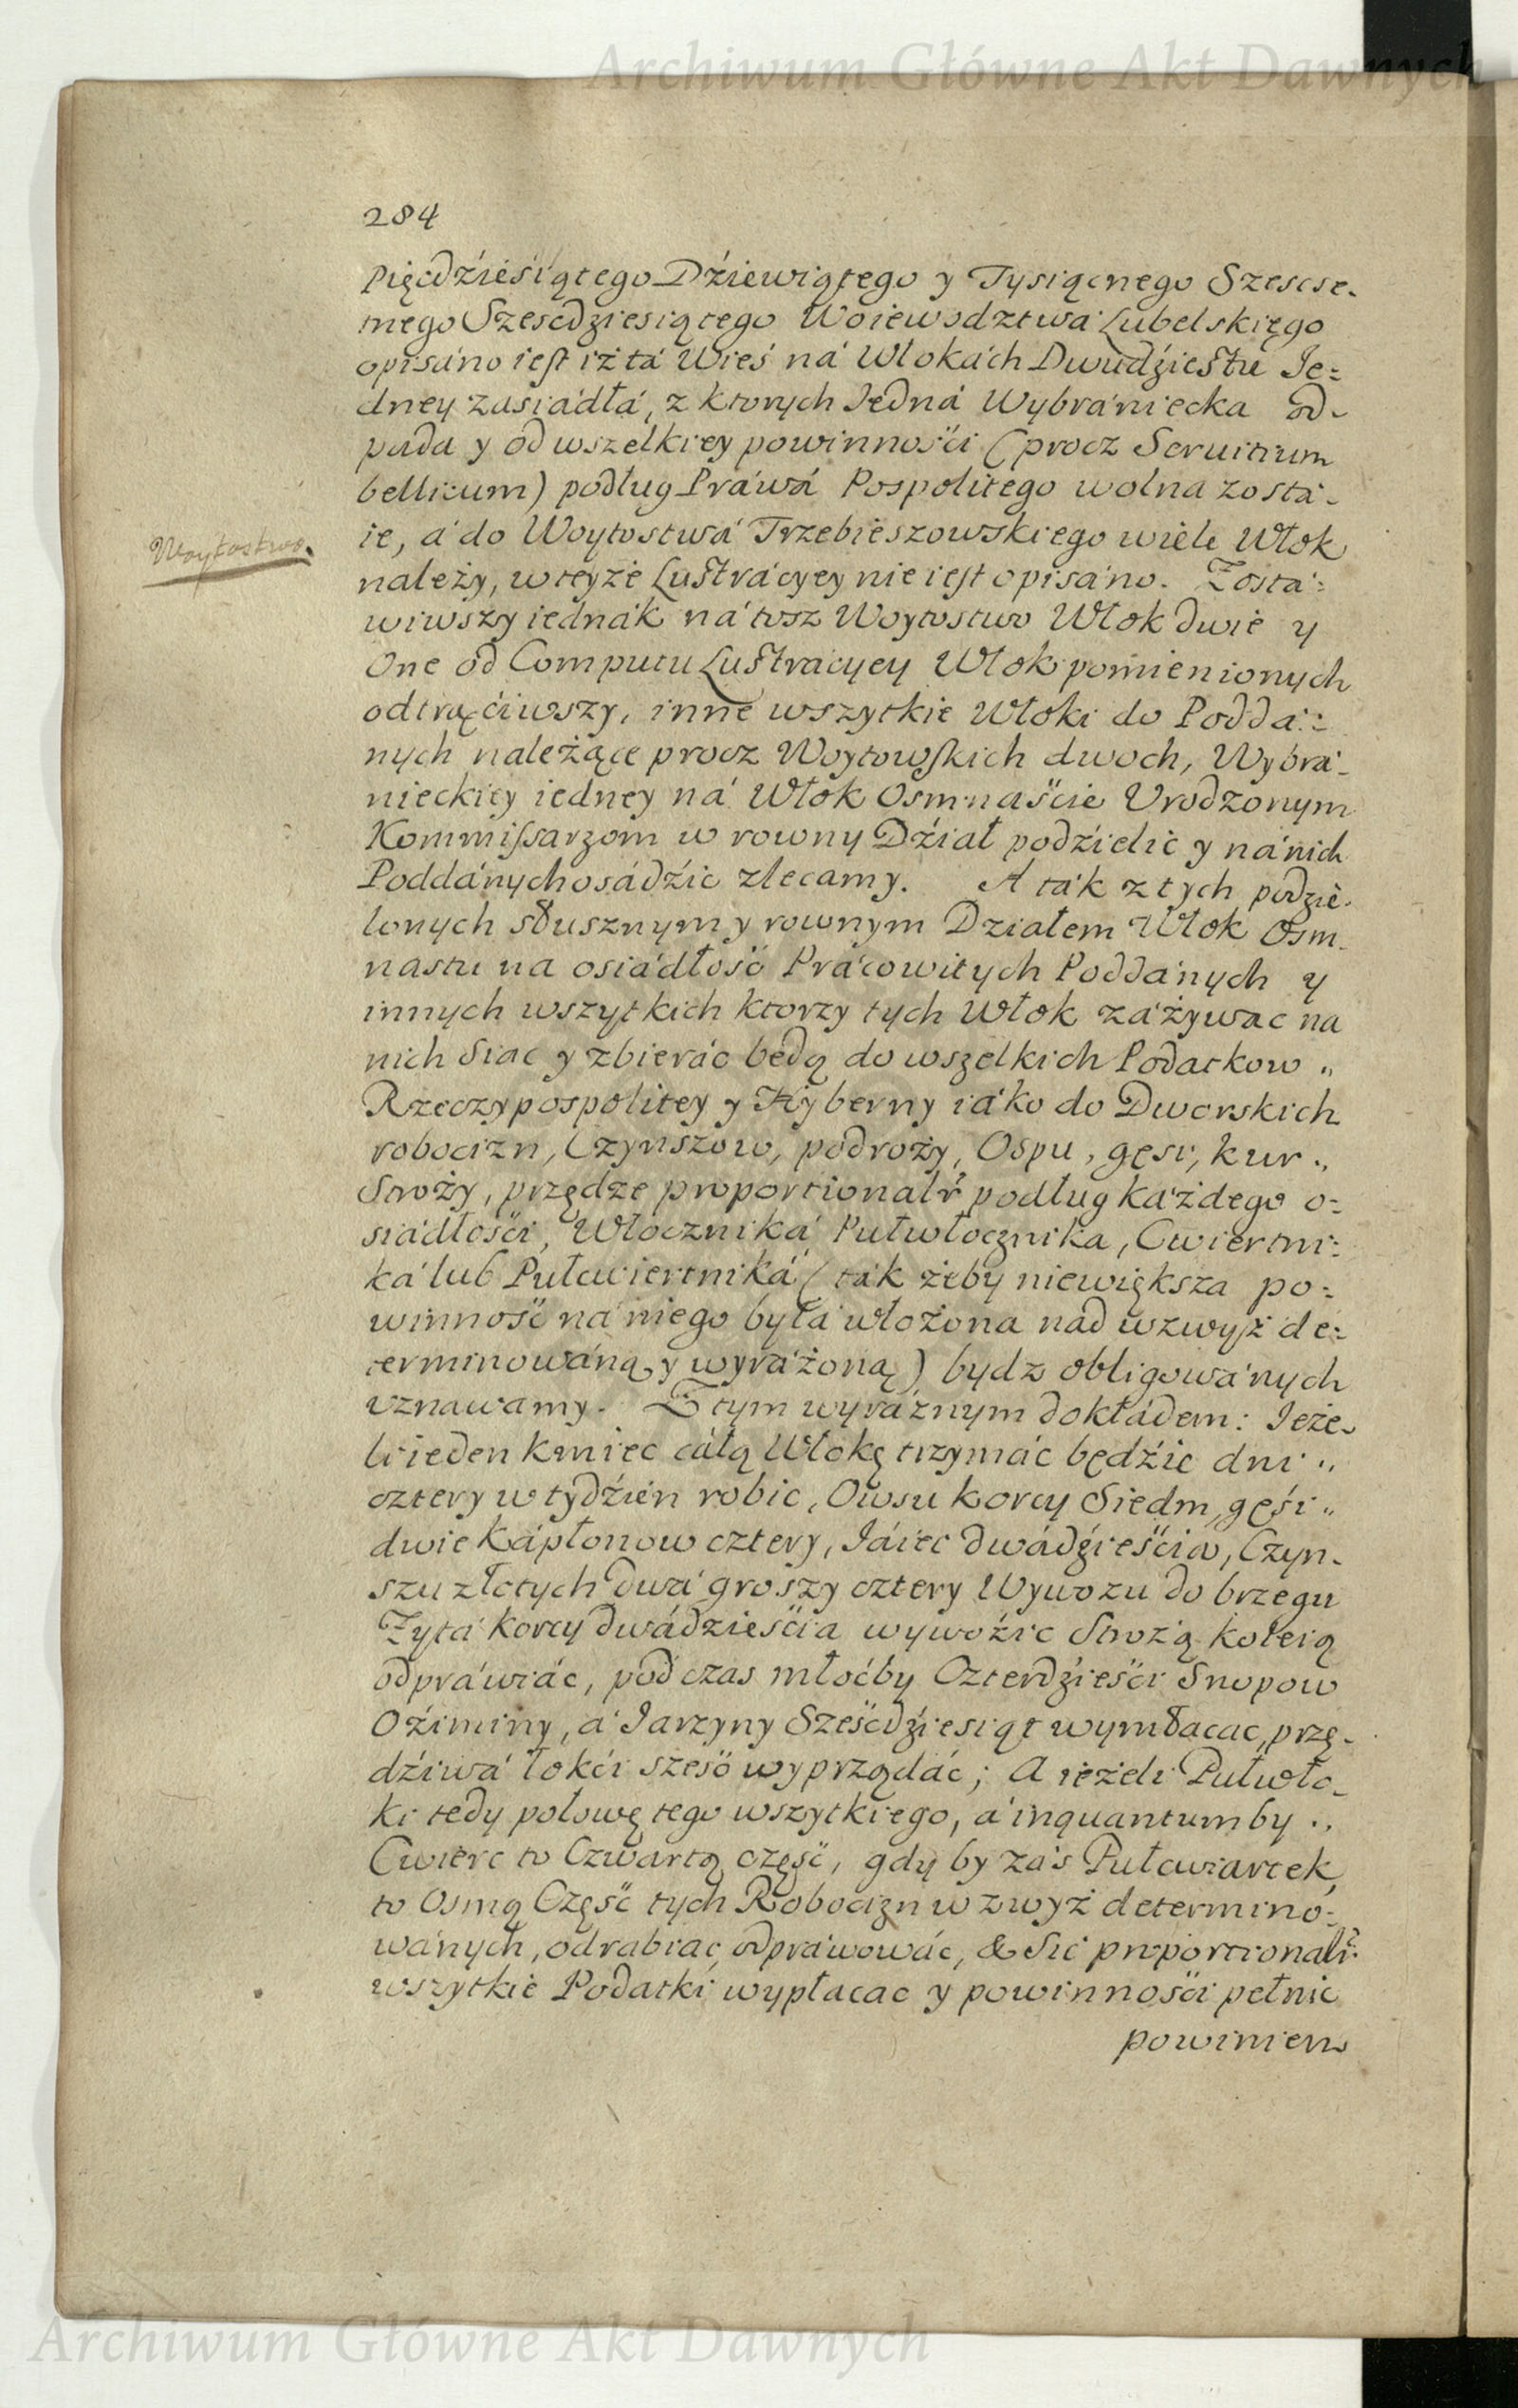 Archiwum Główne Akt Dawnych
284
Pięcdźieśiątego Dźiewiątego y Tysiącnego Szescse-
tnego Szescdziesiątego Woiewodztwá Lubelskięgo
opisáno iest iż tá Wieś ná Włokách Dwudźiestu Je=
dney zasiádłá, z ktorych Jedná Wybrániecka od-
pada y od wszelkiey powinnośći (procz Seruitium
bellicum) podług Práwá Pospolitego wolna zostá-
ie, á do Woytostwá Trzebieszowskiego wiele Włok
Woytostwo.
należy, w teyże Lustrácyey nie iest opisáno. Zostá=
wiwszy iednák ná tosz Woytostwo Włok dwie y
One od Computu Lustrácyey Włok pomienionych
odtrąćiwszy, inne wszytkie Włoki do Poddá=
nych należące procz Woytowskich dwoch, Wybrá-
nieckiey iedney ná Włok Osmnaśćie Vrodzonym
Kommissarzom w rowny Dźiał podźielic y ná nich
Poddánych osádźic zlecamy. A ták z tych podzie-
lonych słusznym y rownym Działem Włok Osm-
nastu na osiádłość Prácowitych Poddánych y
innych wszytkich ktorzy tych Włok záżywac na
nich Siac y zbierác będą do wszelkich Podatkow "
Rzeczypospolitey y Hyberny iáko do Dworskich
robocizn, Czynszow, podroży, Ospu, gęsi, kur "
Stroży, przędze proportionalr podług káżdego o=
siádłośći, Włoczniká Pułwłocznika, Cwiertni=
ká lub Pułcwiertniká (ták żeby niewiększa po=
winność ná niego byłá włożona nad wzwysz de=
terminowáną y wyrażoną) bydz obligowánych
vznawamy. Z tym wyráźnym dokłádem: Jeże-
li ieden kmiec cáłą Włokę trzymác będźie dni "
cztery w tydźień robic, Owsu korcy Siedm, gęśi "
dwie kápłonow cztery, Jáiec dwádźieśćia, Czyn-
szu złotych dwá groszy cztery Wywozu do brzegu
Zytá korcy dwádzieśćia wywoźic Strożą koleią
odpráwiác, pod czas młoćby Czterdźieśći Snopow
Oźiminy, á Jarzyny Sześćdźiesiąt wymłacac, przę-
dźiwá łokći sześć wyprządác; A ieżeli Pułwło-
ki tedy połowę tego wszytkiego, á inquantumby "
Cwierc to Czwartą część, gdy by zás Pułcwiartek,
to Osmą Część tych Robocizn wzwyż determino=
wánych, odrabiac, odpráwowác, & Sic proportionalr
wszytkie Podatki wypłacac y powinnośći pełnic
powinien
Archiwum Główne Akt Dawnych